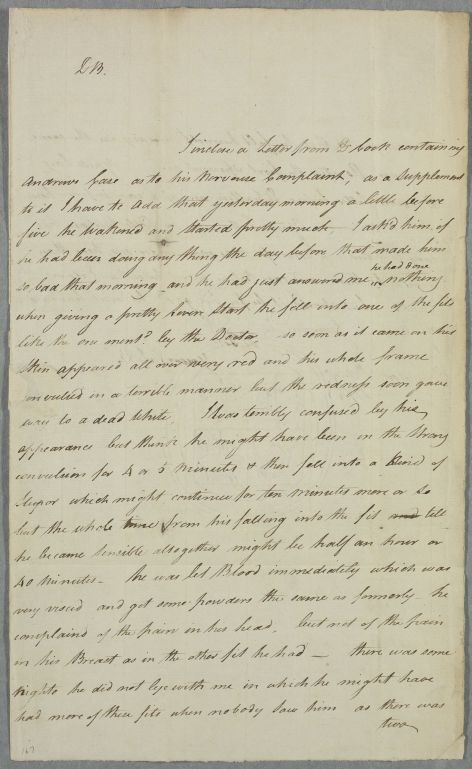 DB.
I inclose a Letter from Dr Cook containing
Andrews Case as to his Nervouse Complaint, as a Supplement
to it I have to add that yesterday morning a little before
five he Wakened and started pretty much I ask'd him if
he had been doing any thing the day before that made him
so bad that morning and he had just answered me, he had done nothing
when giving a pretty severe start he fell into one of the fits
like the one mentd by the Doctor, so soon as it came on his
Skin appeared all over very red and his whole frame
convulsed in a terrible manner but the redness soon gave
way to a dead White, I was terribly confused by his
appearance but think he might have been in the strong
convulsion for 4 or 5 minutes & then fell into a kind of
Stupor which might continue for ten minutes more or so
but the whole time from his falling into the fit and till
he became sencible altogether might be half an hour or
40 minutes - he was let Blood immediately which was
very viscid and got some powders the same as formerly he
complaind of the pain in his head, but not of the pain
in his Breast as in the other fit he had — there was some
nights he did not lye with me in which he might have
had more of these fits when nobody saw him as there was
two